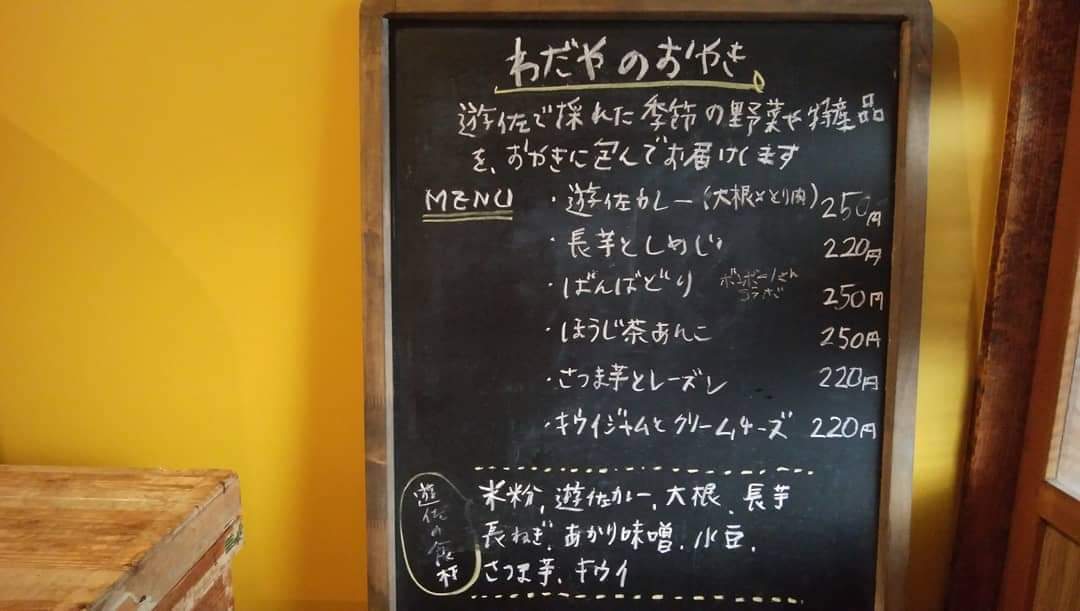 わだやのおやき
遊佐で採れた季節の野菜や特産品
を、おやきに包んでお届けします
MENU
・遊佐カレー(大根ととり肉) 250円
・長芋としめじ 220円
・ばんばどり 250円
・ほうじ茶あんこ 250円
・さつま芋とレーズン 220円
・キウイジャムとクリームチーズ 220円
遊佐の食材
米粉、遊佐カレー、大根、長芋
長ねぎ、あかり味噌、小豆、
さつま芋、キウイ